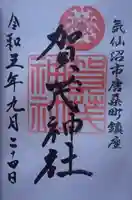 気仙沼市唐桑町鎮座
賀茂神社
令和三年九月二十四日